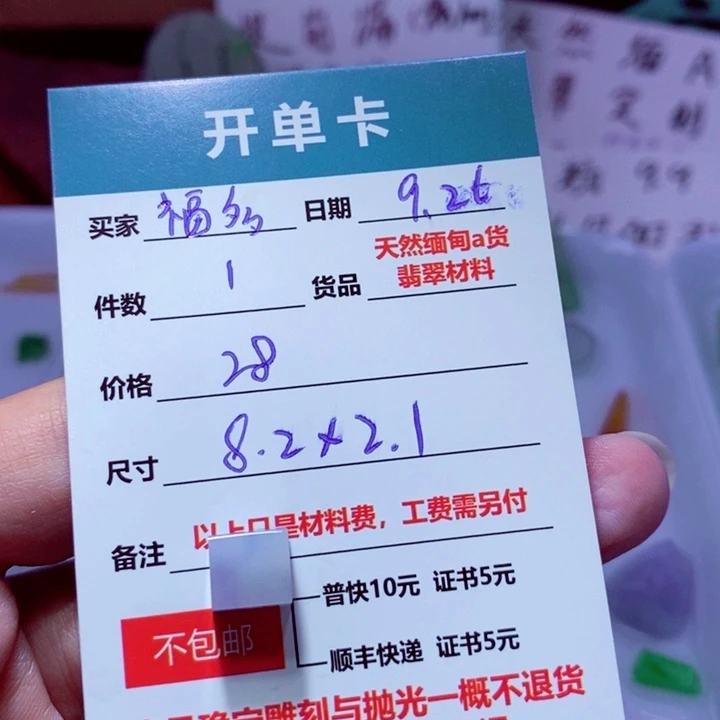 开单卡
买家 福多 日期 9.26
件数 1 货品 天然缅甸a货
翡翠材料
价格 28
尺寸 8.2×2.1
备注 以上只是材料费，工费需另付
普快10元 证书5元
不包邮
顺丰快递 证书5元
确定雕刻与抛光一概不退货